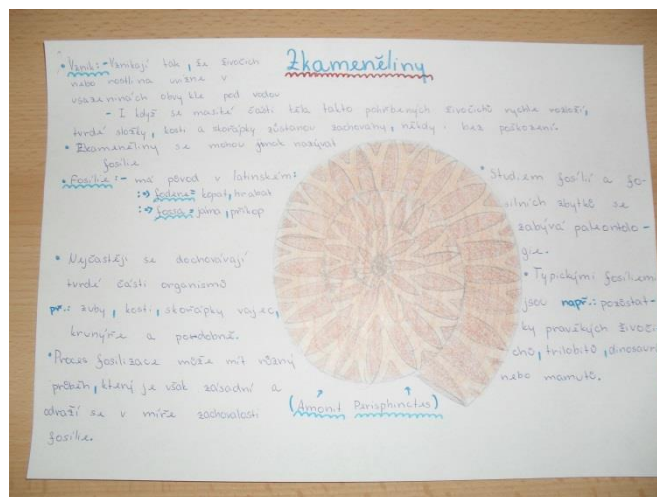 Zkameněliny
• Vznik: - Vznikají tak, že živočich
nebo rostlina uvázne v
usazeninách obvykle pod vodou
- I když se masité části těla takto pohřbených živočichů rychle rozloží,
tvrdé složky, kosti a skořápky zůstanou zachovány, někdy bez poškození.
• Zkameněliny se mohou jinak nazývat
fosílie
• Fosílie: - má původ v latinském:
:→ fodere = kopat, hrabat
:→ fossa = jáma, příkop
• Nejčastěji se dochovávají
tvrdé části organismů
př.: zuby, kosti, skořápky vajec,
krunýře a podobně.
• Proces fosilizace může mít různý
průběh, který je však zásadní a
odráží se v míře zachovalosti
fosílie.
• Studiem fosílií a fo-
silních zbytků se
zabývá paleontolo-
gie.
• Typickými fosiliemi
jsou např.: pozůstat-
ky pravěkých živoči-
chů, trilobitů, dinosaurů
nebo mamutů.
(Amonit Perisphinctes)